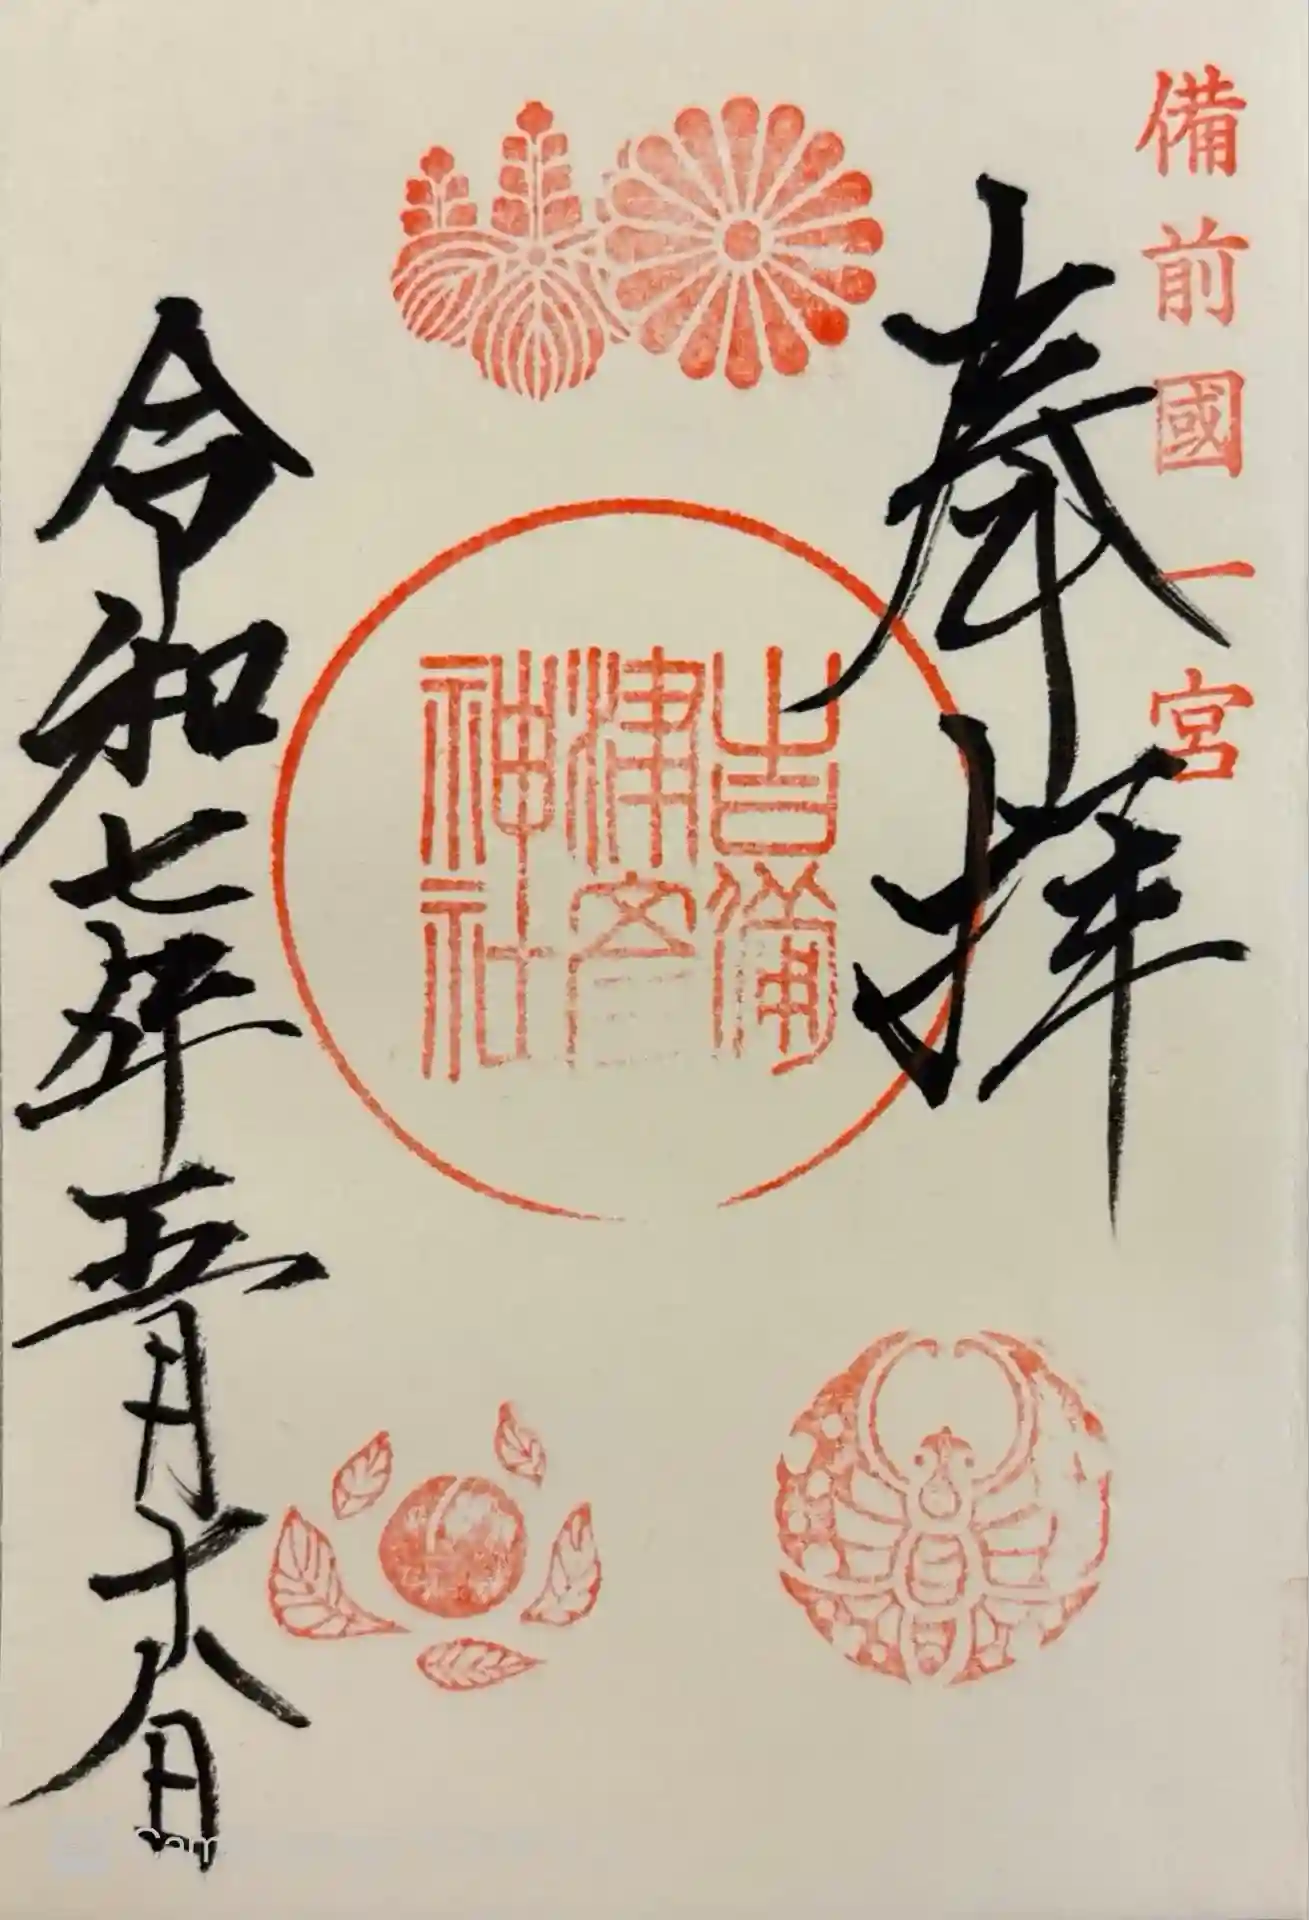 備前國一宮
奉拝
吉備
津彦
神社
令和七年五月十八日
Cam